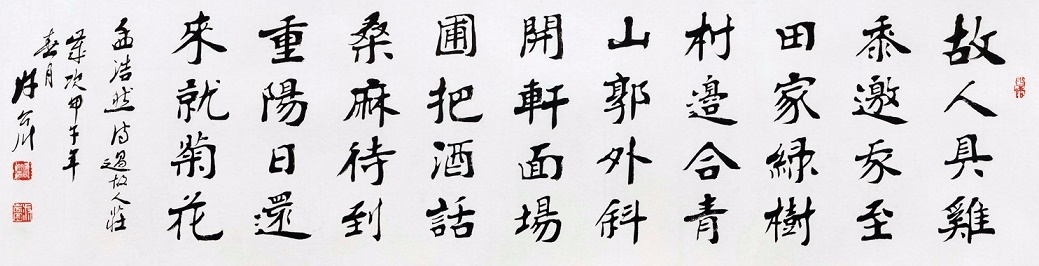 故人具雞
黍邀我至
田家綠樹
村邊合青
山郭外斜
開軒面場
圃把酒話
桑麻待到
重陽日還
來就菊花
孟浩然詩過故人莊
歲次甲午年
春月